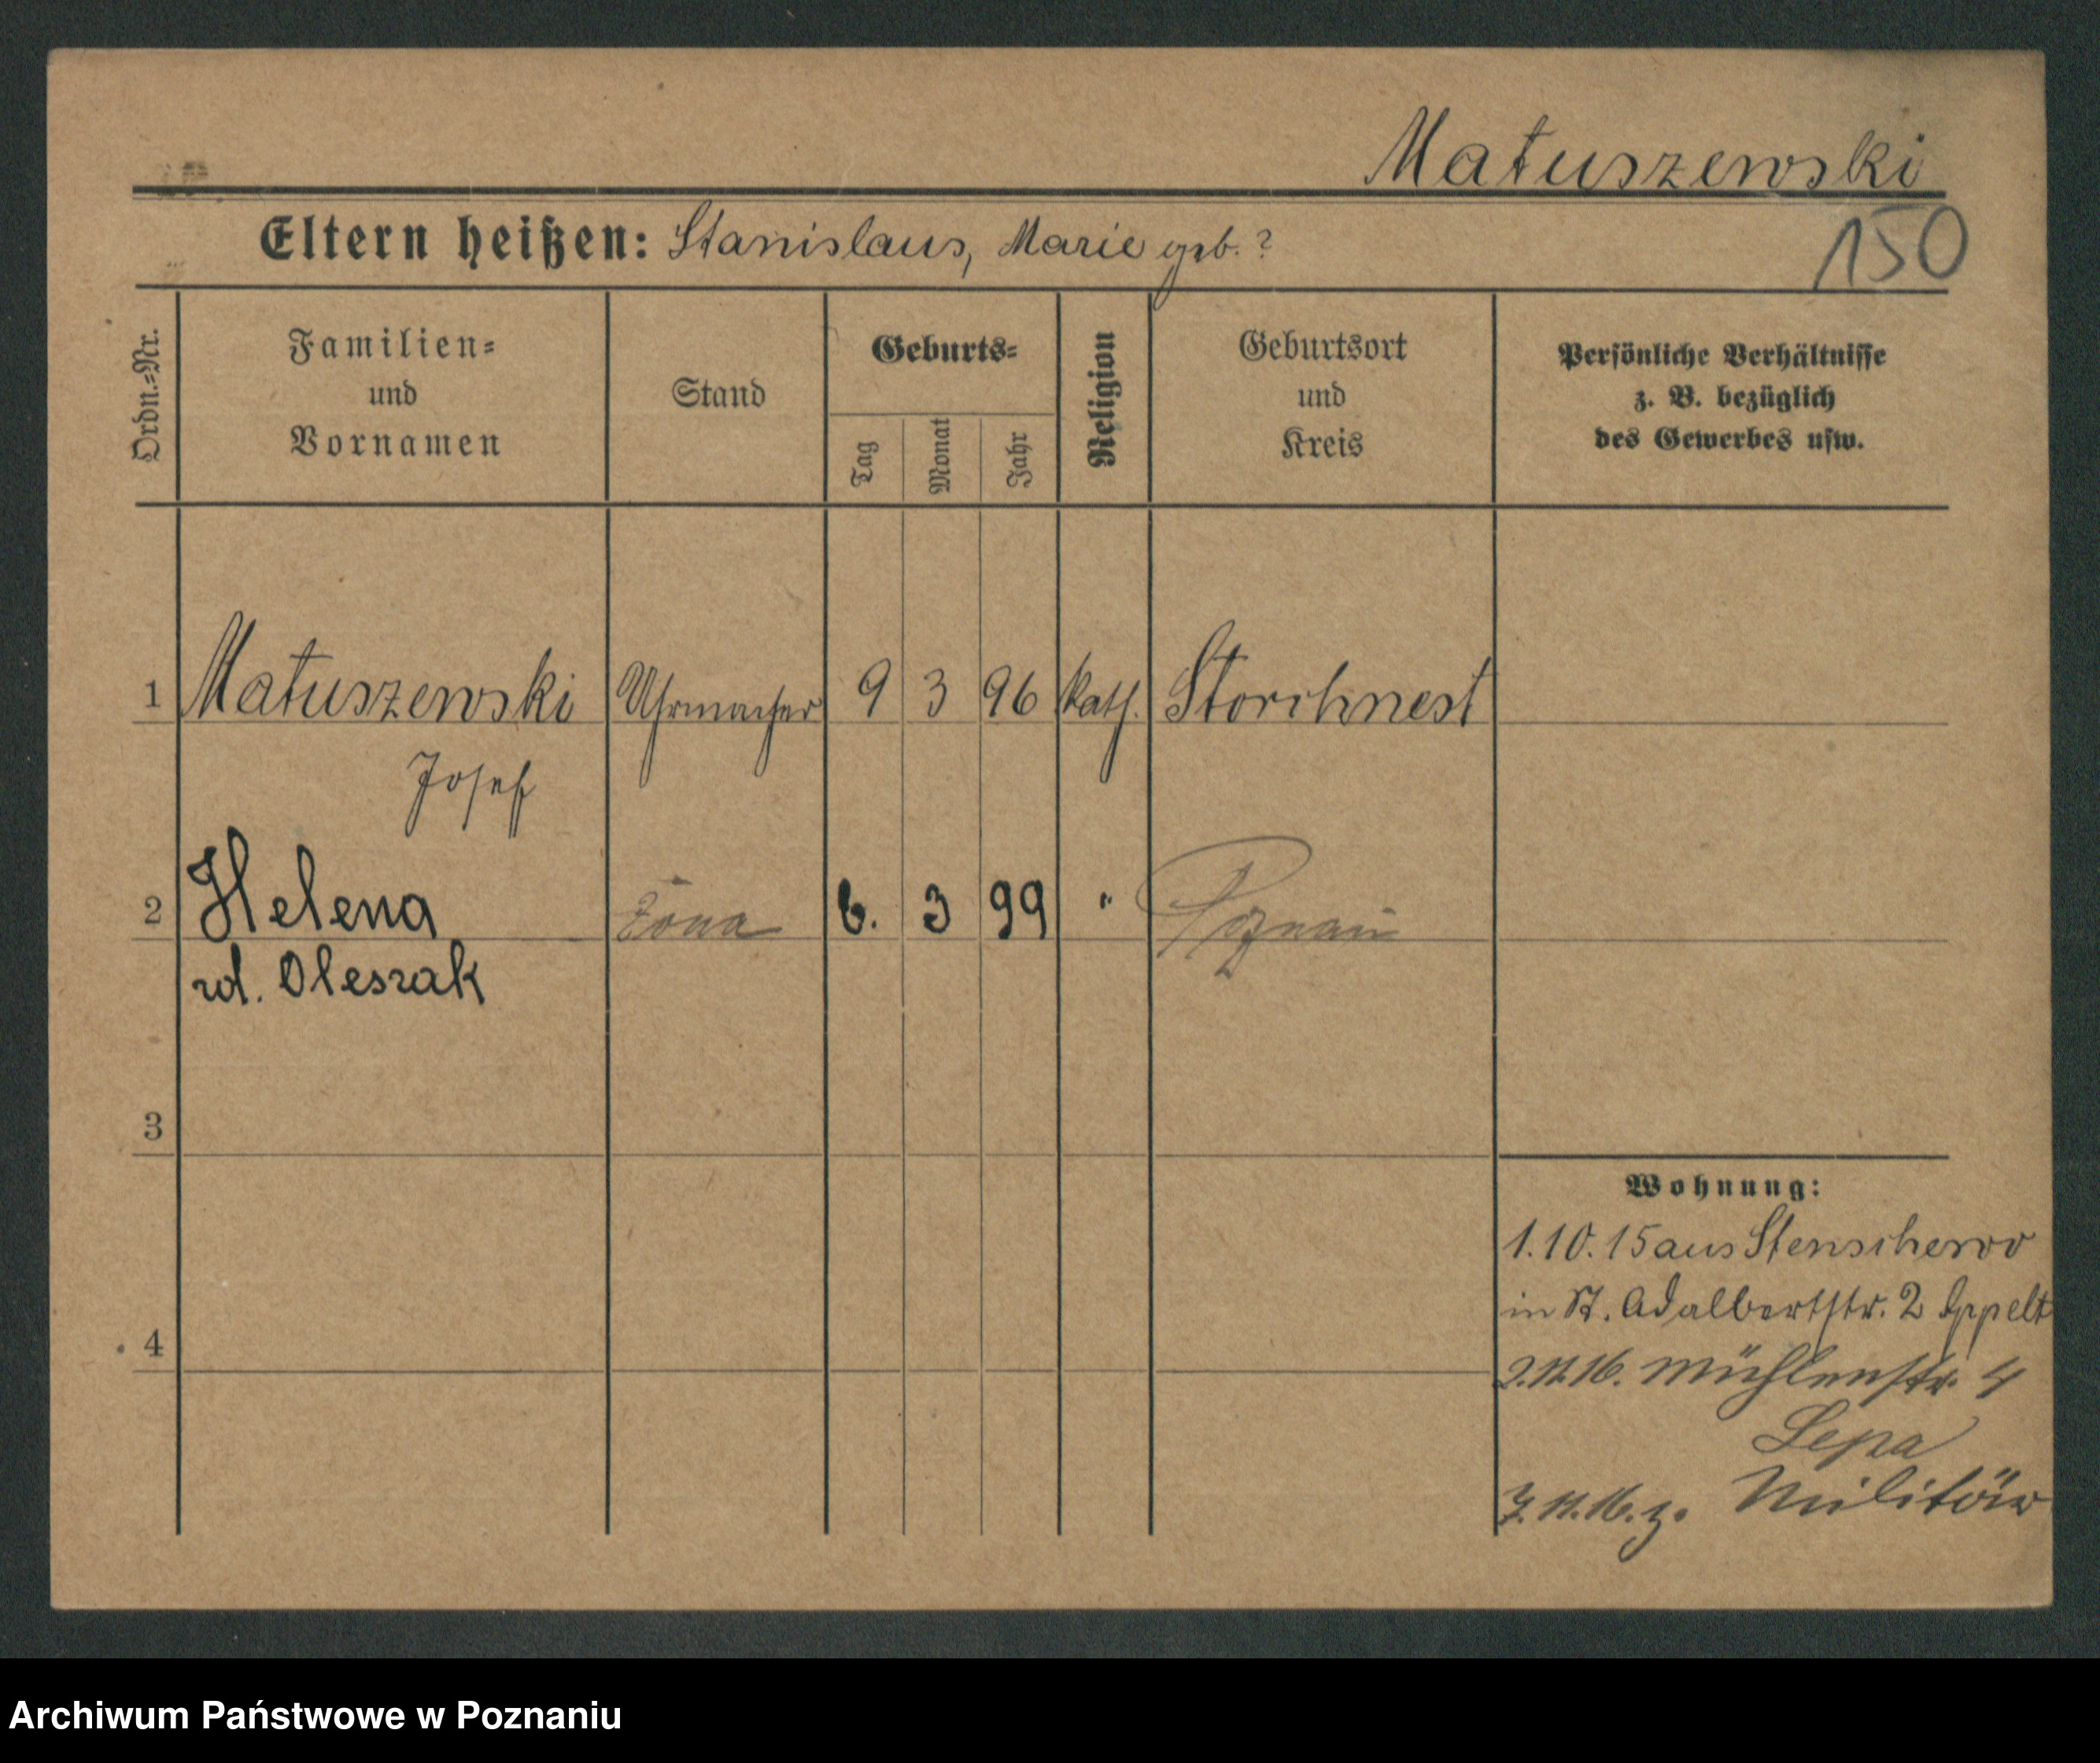 Matuszewski
Eltern heißen: Stanislaus, Marie geb. ?
150
Ordn.=Nr.
Familien=
und
Vornamen
Stand
Geburts=
Tag
Monat
Jahr
Religion
Geburtsort
und
Kreis
Persönliche Verhältnisse
z. B. bezüglich
des Gewerbes usw.
1 Matuszewski Uhrmacher 9 3 96 kath. Storchnest
Josef
2 Helena żona 6. 3 99 " Poznań
rd. Oleszak
3
Wohnung:
1.10.15 aus Stenschewo
in St. Adalbertstr. 2 Appelt
4
2.11.16. Mühlenstr. 4
Lepa
7.11.16. z. Militär
Archiwum Państwowe w Poznaniu